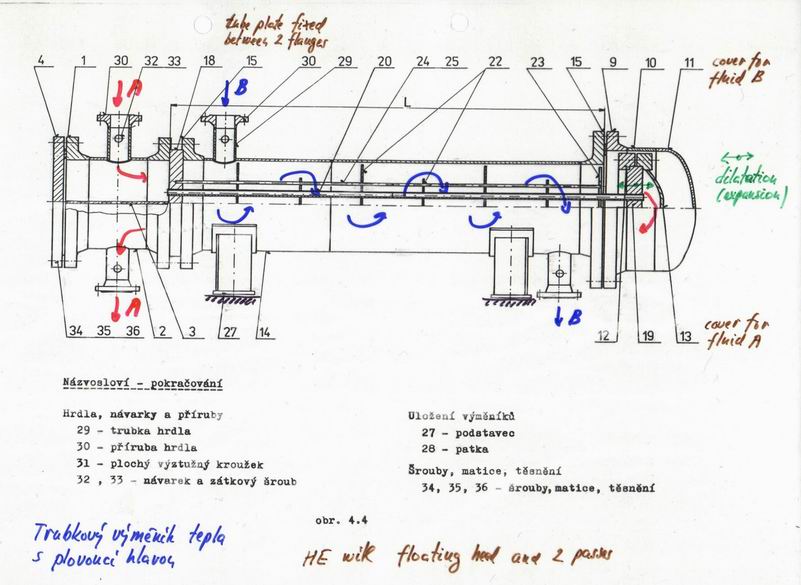 tube plate fixed
between 2 flanges
4 1 30 32 33 18 15 30 29 20 24 25 22 23 15 9 10 11
cover for
fluid B
A
B
L
dilatation
(expansion)
A
B
34 35 36 2 3 27 14 12 19 13
cover for
fluid A
Názvosloví - pokračování
Hrdla, návarky a příruby
29 - trubka hrdla
30 - příruba hrdla
31 - plochý výztužný kroužek
32 , 33 - návarek a zátkový šroub
Uložení výměníků
27 - podstavec
28 - patka
Šrouby, matice, těsnění
34, 35, 36 - šrouby, matice, těsnění
obr. 4.4
Trubkový výměník tepla
s plovoucí hlavou
HE with floating head and 2 passes